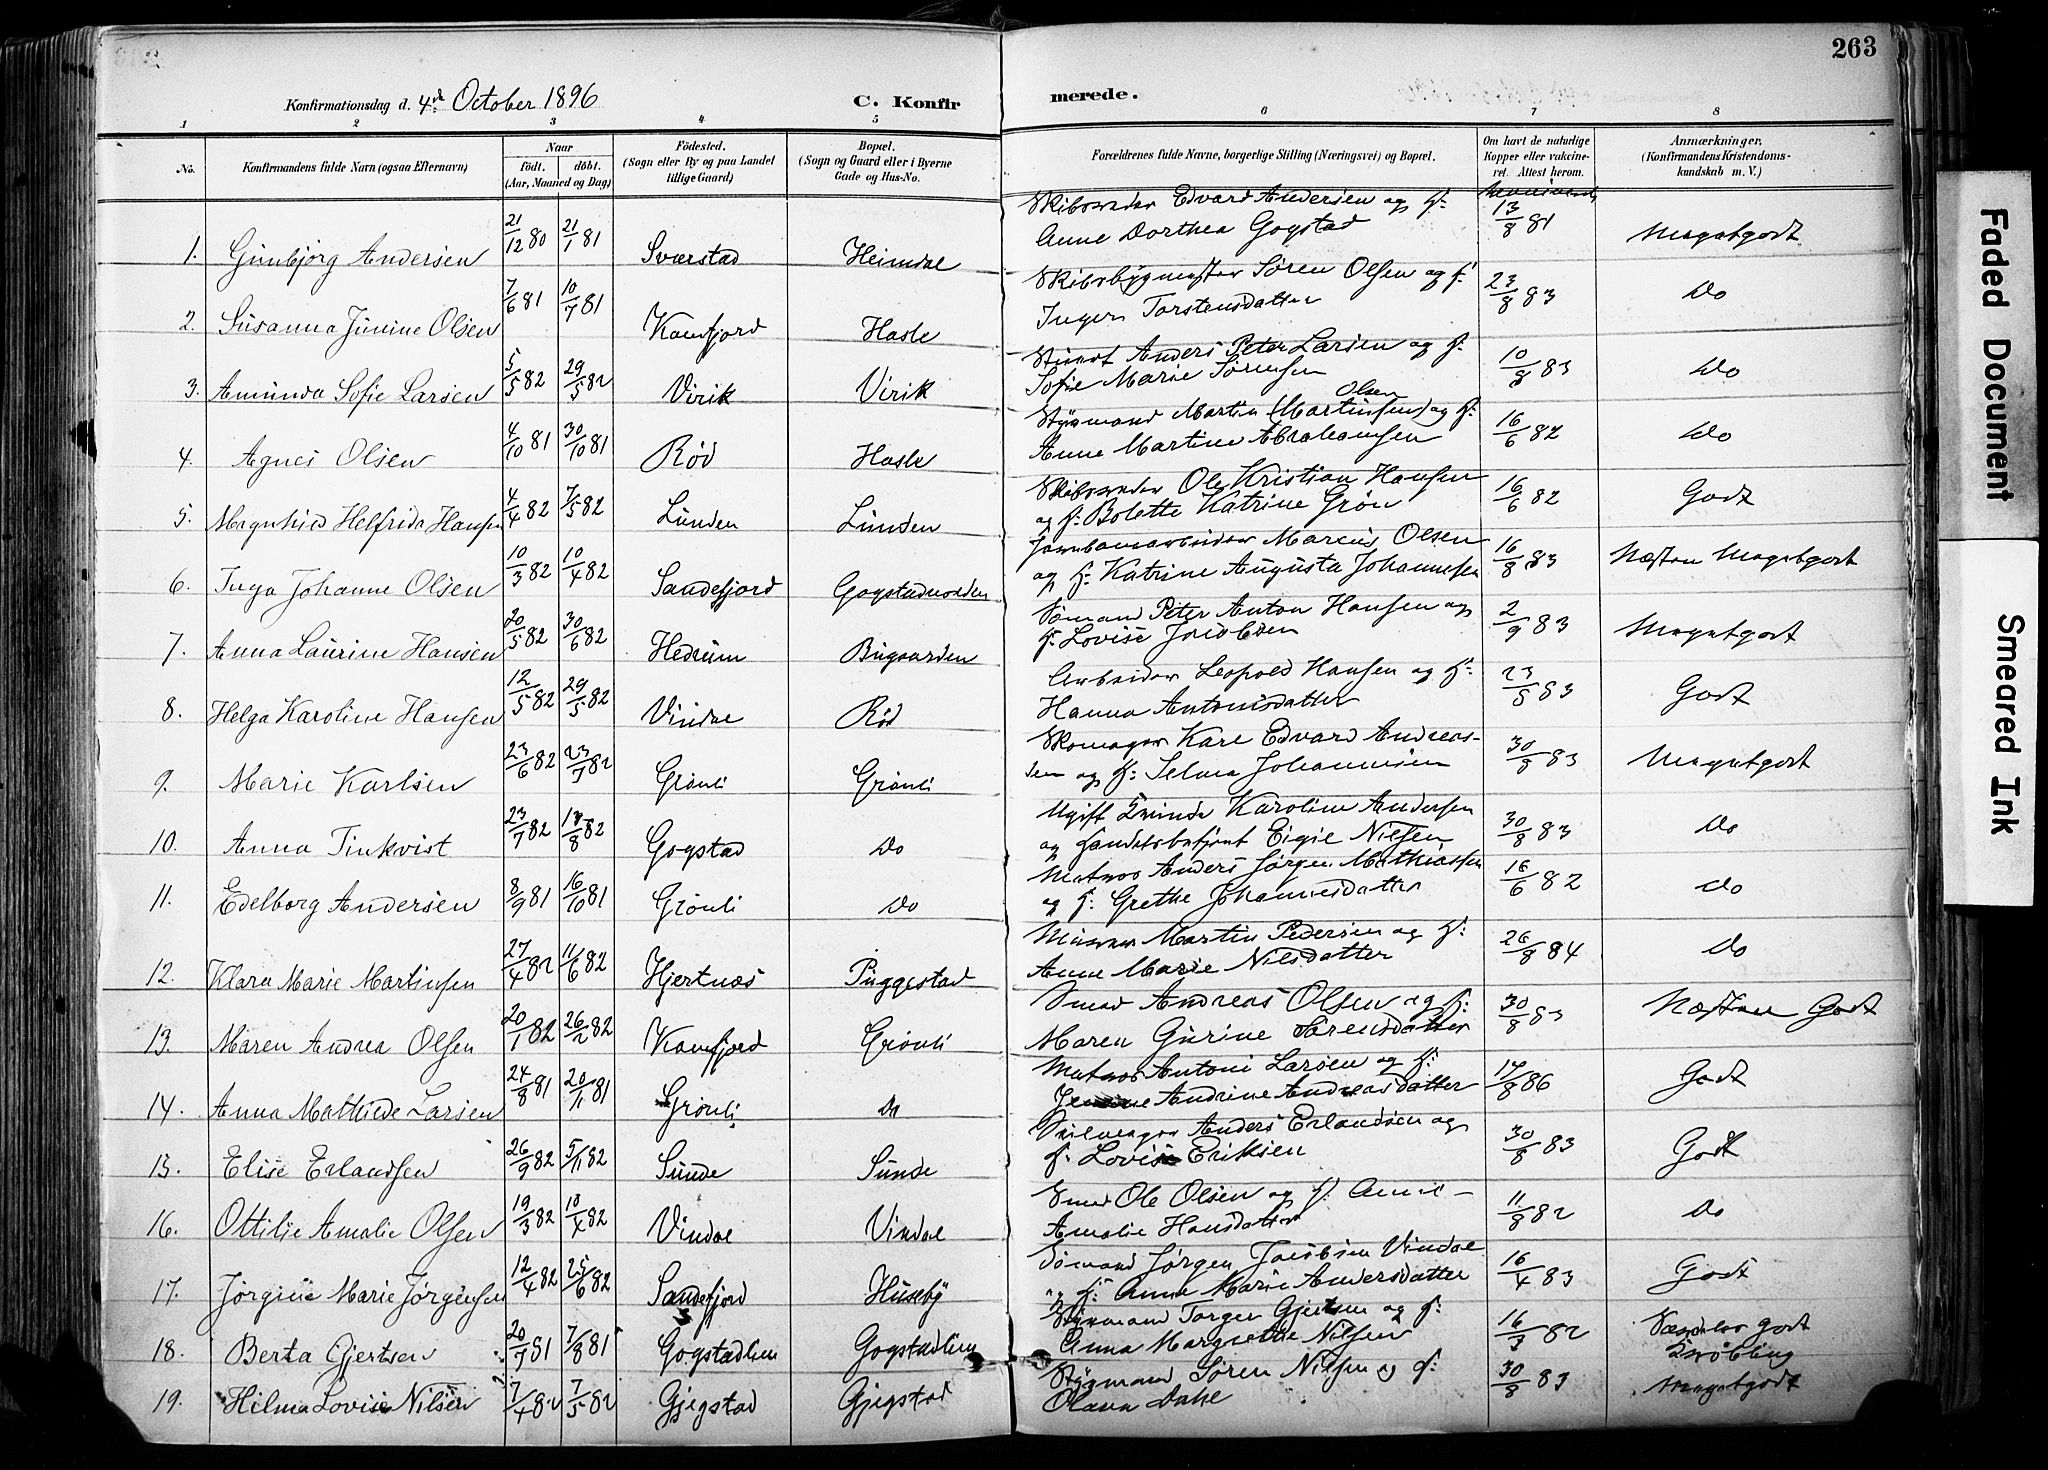 263
Konfirmationsdag d. 4de October 1896
C. Konfirmerede.
1 2 3 4 5 6 7 8
No. Konfirmandens fulde Navn (ogsaa Efternavn) Naar født. døbt. (Aar, Maaned og Dag) Fødested. (Sogn eller By og paa Landet tillige Gaard) Bopæl. (Sogn og Gaard eller i Byerne Gade og Hus-No. Forældrenes fulde Navne, borgerlige Stilling (Næringsvei) og Bopæl. Om havt de naturlige Kopper eller vakcineret. Attest herom. Anmærkninger. (Konfirmandens Kristendomskundskab m. V.)
1. Gunbjørg Andersen 21/12 80 21/1 81 Sværstad Heimdal Skibsreder Edvard Andersen og H:
Anne Dorthea Gogstad 13/8 81 Megetgodt
2. Susanna Jumine Olsen 7/6 81 10/7 81 Kamfjord Hasle Skibsbygmester Søren Olsen og H:
Inger Torstensdatter 23/8 83 Do
3. Amunda Sofie Larsen 5/5 82 29/5 82 Virik Virik Anders Peter Larsen og H:
Sofie Marie Sørensen 10/8 83 Do
4. Agnes Olsen 4/10 81 30/10 81 Rød Hasle Styrmand Martin (Martinsen) Olsen og H:
Anne Martine Abrahamsen 16/6 82 Do
5. Magnhild Helfrida Hansen 4/4 82 7/5 82 Lunden Lunden Skibsreder Ole Kristian Hansen
og H: Bolette Katrine Grøn 16/6 82 Godt
6. Inga Johanne Olsen 10/3 82 10/4 82 Sandefjord Gogstadnorden Jernbanearbeider Marcus Olsen
og H: Katrine Augusta Johannesen 16/8 83 Næsten Megetgodt
7. Anna Laurine Hansen 20/5 82 30/6 82 Hedrum Bugaarden Sømand Peter Anton Hansen og
H: Lovise Jacobsen 2/9 83 Megetgodt
8. Helga Karoline Hansen 12/5 82 29/5 82 Vindal Rød Arbeider Leopold Hansen og H:
Hanna Antonisdatter 23/5 83 Godt
9. Marie Karlsen 23/6 82 23/7 82 Grønli Grønli Skomager Karl Edvard Andreas-
sen og H: Selma Johannesen 30/8 83 Megetgodt
10. Anna Tinkvist 23/7 82 13/8 82 Gogstad Do Ugift Kvinde Karoline Andersen
og Handelsbetjent Eigil Nilsen 30/8 83 Do
11. Edelborg Andersen 8/9 81 16/10 81 Grønli Do Matros Anders Jørgen Mathiassen
og H: Grethe Johannesdatter 16/6 82 Do
12. Klara Marie Martinsen 27/4 82 11/6 82 Hjertnæs Puggestad Murer Martin Pedersen og H:
Anne Marie Nilsdatter 26/8 84 Do
13. Maren Andrea Olsen 20/1 82 26/2 82 Kamfjord Grønli Smed Andreas Olsen og H:
Maren Gurine Sørensdatter 30/8 83 Næsten Godt
14. Anna Mathilde Larsen 24/8 81 20/11 81 Grønli Do Matros Antoni Larsen og H:
Andrine Andreasdatter 17/8 86 Godt
15. Elise Erlandsen 26/9 82 5/11 82 Sunde Sunde Seilmager Anders Erlandsen og
H: Lovise Eriksen 30/8 83 Godt
16. Ottilie Amalie Olsen 19/3 82 10/4 82 Vindal Vindal Smed Ole Olsen og H: Anne
Amalie Hansdatter 11/8 82 Do
17. Jørgine Marie Jørgensen 12/4 82 25/6 82 Sandefjord Huseby Sømand Jørgen Jacobsen Vindal
og H: Anne Marie Andersdatter 16/4 83 Godt
18. Berta Gjertsen 20/7 81 7/8 81 Gogstadlien Gogstadlien Styrmand Torger Gjertsen og H:
Anna Margrethe Nilsen 16/3 82 Særdeles godt
19. Hilma Lovise Nilsen 7/4 82 7/5 82 Gjegstad Gjegstad Styrmand Søren Nilsen og H:
Olava Dahl 30/8 83 Megetgodt
Faded Document
Smeared Ink